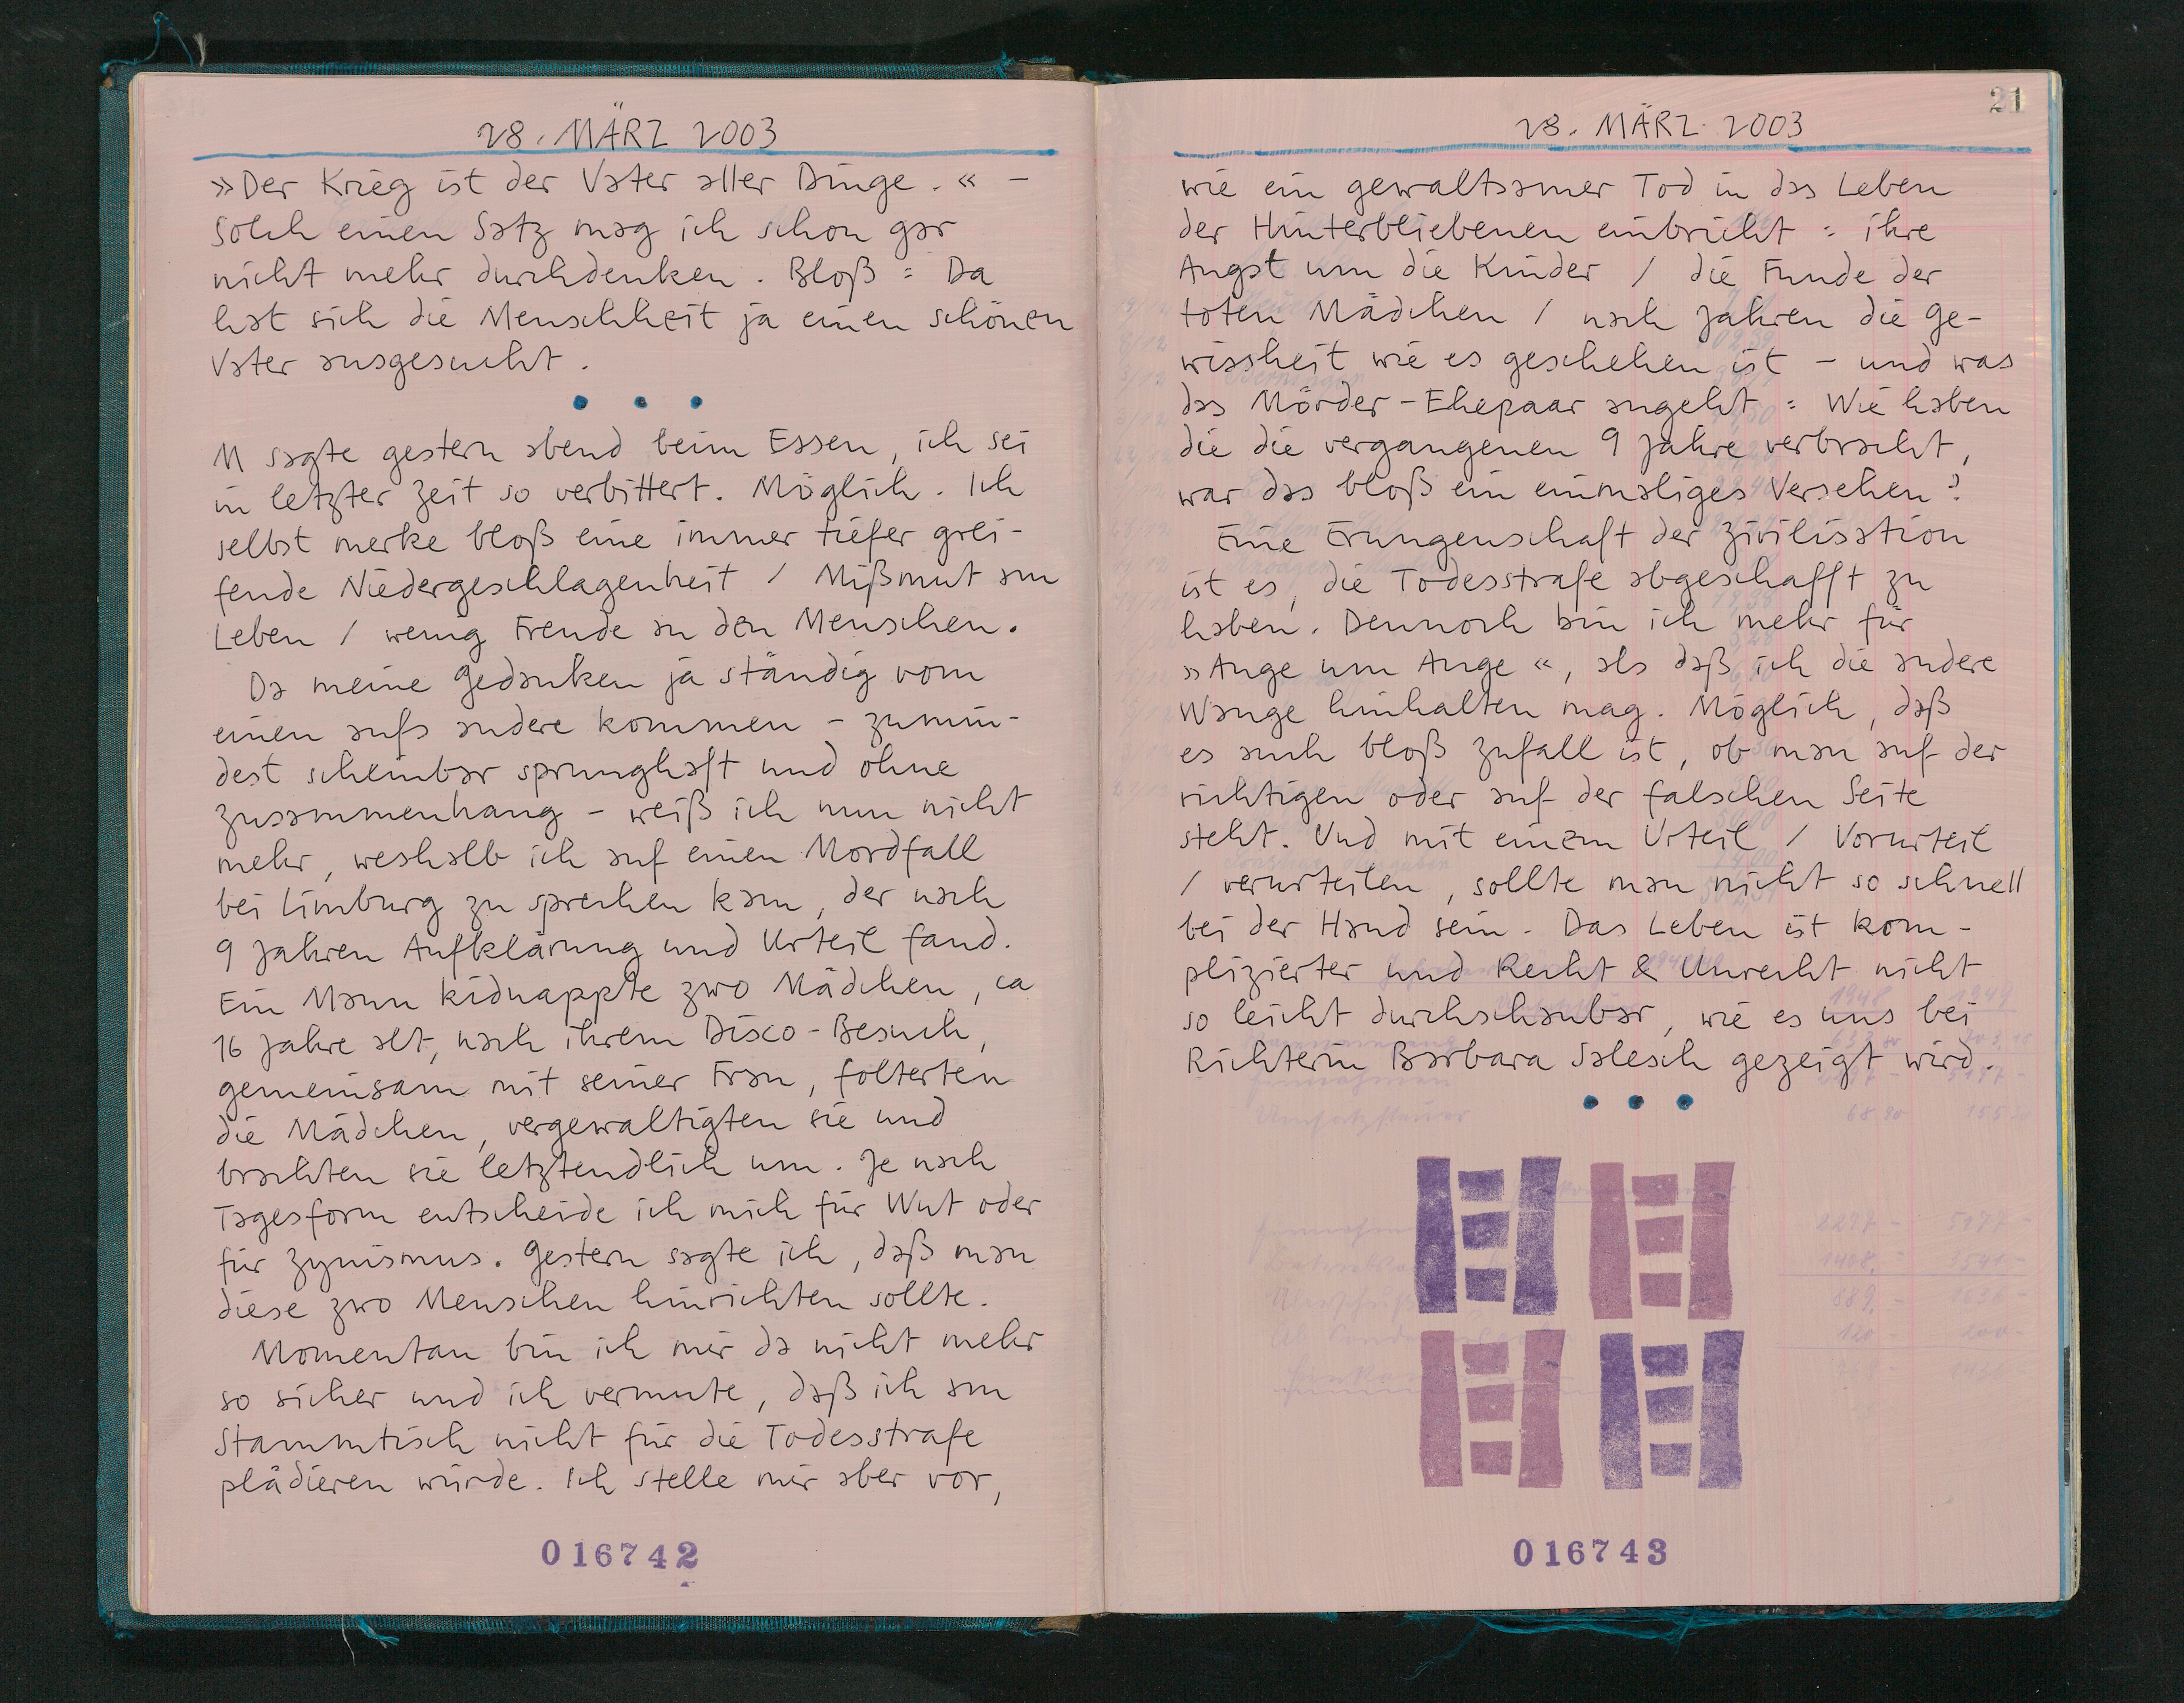 28. MÄRZ 2003
»Der Krieg ist der Vater aller Dinge.« –
Solch einen Satz mag ich schon gar
nicht mehr durchdenken. Bloß: Da
hat sich die Menschheit ja einen schönen
Vater ausgesucht.
• • •
M sagte gestern abend beim Essen, ich sei
in letzter Zeit so verbittert. Möglich. Ich
selbst merke bloß eine immer tiefer grei-
fende Niedergeschlagenheit / Mißmut am
Leben / wenig Freude an den Menschen.
Da meine Gedanken ja ständig vom
einen aufs andere kommen – zumin-
dest scheinbar sprunghaft und ohne
Zusammenhang – weiß ich nun nicht
mehr, weshalb ich auf einen Mordfall
bei Limburg zu sprechen kam, der nach
9 Jahren Aufklärung und Urteil fand.
Ein Mann kidnappte zwo Mädchen, ca
16 Jahre alt, nach ihrem Disco-Besuch,
gemeinsam mit seiner Frau, folterten
die Mädchen, vergewaltigten sie und
brachten sie letztendlich um. Je nach
Tagesform entscheide ich mich für Wut oder
für Zynismus. Gestern sagte ich, daß man
diese zwo Menschen hinrichten sollte.
Momentan bin ich mir da nicht mehr
so sicher und ich vermute, daß ich am
Stammtisch nicht für die Todesstrafe
plädieren würde. Ich stelle mir aber vor,
016742
21
28. MÄRZ 2003
wie ein gewaltsamer Tod in das Leben
der Hinterbliebenen einbricht: ihre
Angst um die Kinder / die Funde der
toten Mädchen / nach Jahren die Ge-
wissheit wie es geschehen ist – und was
das Mörder-Ehepaar angeht: Wie haben
die die vergangenen 9 Jahre verbracht,
war das bloß ein einmaliges Versehen?
Eine Erungenschaft der Zivilisation
ist es, die Todesstrafe abgeschafft zu
haben. Dennoch bin ich mehr für
»Auge um Auge«, als daß ich die andere
Wange hinhalten mag. Möglich, daß
es auch bloß Zufall ist, ob man auf der
richtigen oder auf der falschen Seite
steht. Und mit einem Urteil / Vorurteil
/ verurteilen, sollte man nicht so schnell
bei der Hand sein. Das Leben ist kom-
plizierter und Recht & Unrecht nicht
so leicht durchschaubar, wie es uns bei
Richterin Barbara Salesch gezeigt wird.
• • •
016743